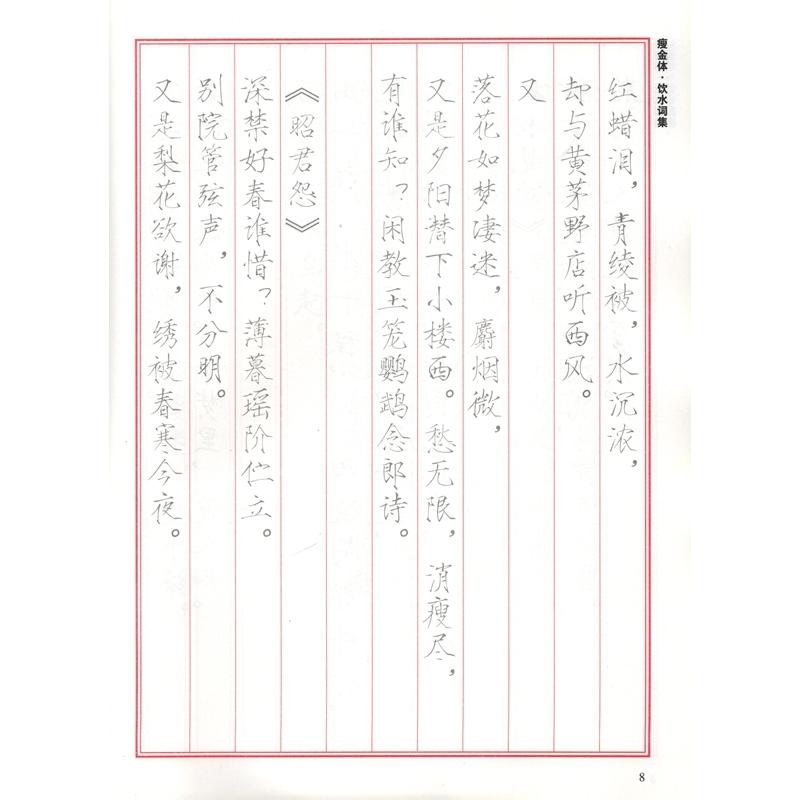 瘦金体·饮水词集
红蜡泪，青绫被，水沉浓，
却与黄茅野店听西风。
又
落花如梦凄迷，麝烟微，
又是夕阳替下小楼西。愁无限，消瘦尽，
有谁知？闲教玉笼鹦鹉念郎诗。
《昭君怨》
深禁好春谁惜？薄暮瑶阶伫立。
别院管弦声，不分明。
又是梨花欲谢，绣被春寒今夜。
8